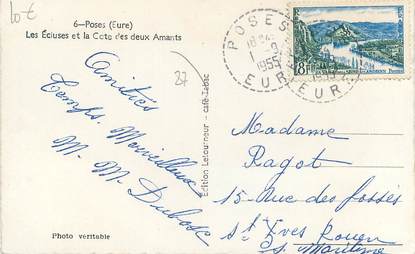 10-€
6—Poses (Eure)
Les Écluses et la Cote des deux Amants
27
Amitiés
Temps Merveilleux
M. M. Dubosc
Photo veritable
Edition Letourneur - café-Tabac
POSES
1955
EURE
8F
Madame
Ragot
15 Rue des fossés
St Yves Rouen
S. Maritime